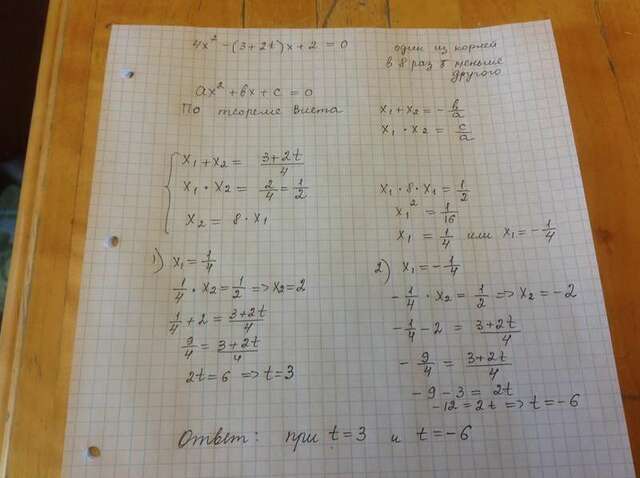 4x² − (3 + 2t)x + 2 = 0
один из корней
в 8 раз меньше
другого
ax² + bx + c = 0
По теореме Виета
x₁ + x₂ = −b/a
x₁ · x₂ = c/a
x₁ + x₂ = (3 + 2t)/4
x₁ · x₂ = 2/4 = 1/2
x₂ = 8 · x₁
x₁ · 8 · x₁ = 1/2
x₁² = 1/16
x₁ = 1/4 или x₁ = −1/4
1) x₁ = 1/4
1/4 · x₂ = 1/2 => x₂ = 2
1/4 + 2 = (3 + 2t)/4
9/4 = (3 + 2t)/4
2t = 6 => t = 3
2) x₁ = −1/4
−1/4 · x₂ = 1/2 => x₂ = −2
−1/4 − 2 = (3 + 2t)/4
−9/4 = (3 + 2t)/4
−9 − 3 = 2t
−12 = 2t => t = −6
Ответ: при t = 3 и t = −6